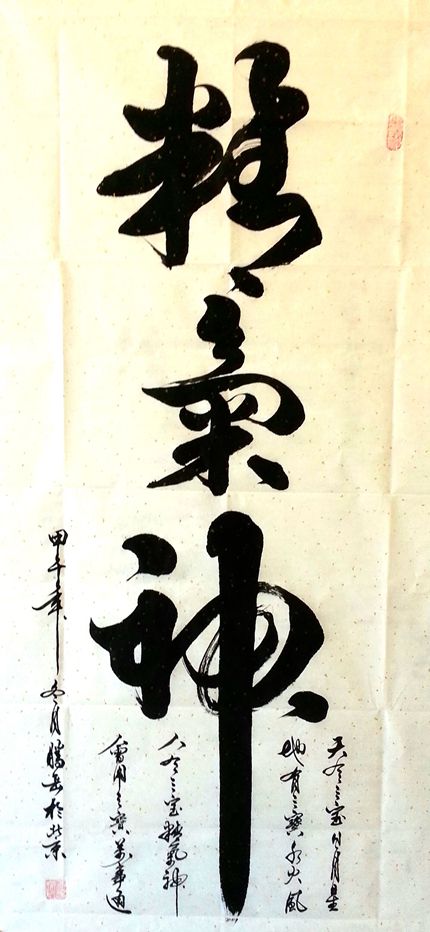 精氣神
天有三宝日月星
地有三寶水火風
人有三宝精氣神
會用三寶萬事通
甲午年冬月勝岳於北京